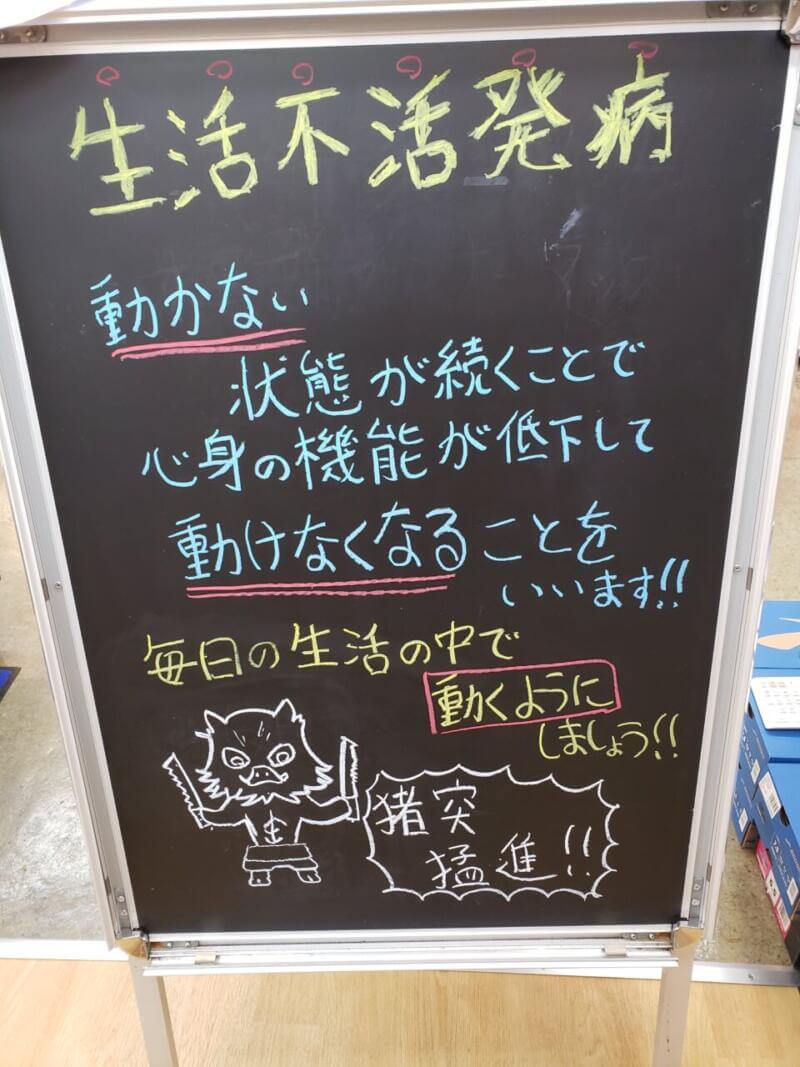 生活不活発病
動かない
状態が続くことで
心身の機能が低下して
動けなくなることを
いいます!!
毎日の生活の中で
動くように
しましょう!!
猪突
猛進!!